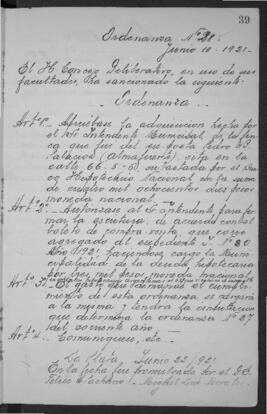 39
Ordenanza Nº 28
Junio 10 - 1921 -
El H. Concejo Deliberativo, en uso de sus
facultades, ha sancionado la siguiente:
Ordenanza
Artº 1º - Apruébase la adquisición hecha por
el Sr. Intendente Municipal de la fin-
ca que fué del poeta Pedro B.
Palacios (Almafuerte), sita en la
calle 66-5-6, subastada por el Ban-
co Hipotecario Nacional en la suma
de cuatro mil ochocientos pesos
moneda nacional.
Artº 2º - Autorízase al Sr. Intendente para fir-
mar la escritura, de acuerdo con el
boleto de compra-venta, que corre
agregado al expediente L. Nº 20
Año 1921, haciéndose cargo la Muni-
cipalidad de la deuda hipotecaria
por tres mil pesos moneda nacional.
Artº 3º - El gasto que demande el cumpli-
miento de esta ordenanza, se cargará
a la misma y tendrá la imputación
que determina la ordenanza Nº 27
del corriente año -
Artº 4º - Comuníquese, etc -
La Plata, Junio 22/921
En la fecha fué promulgada por el D. E.